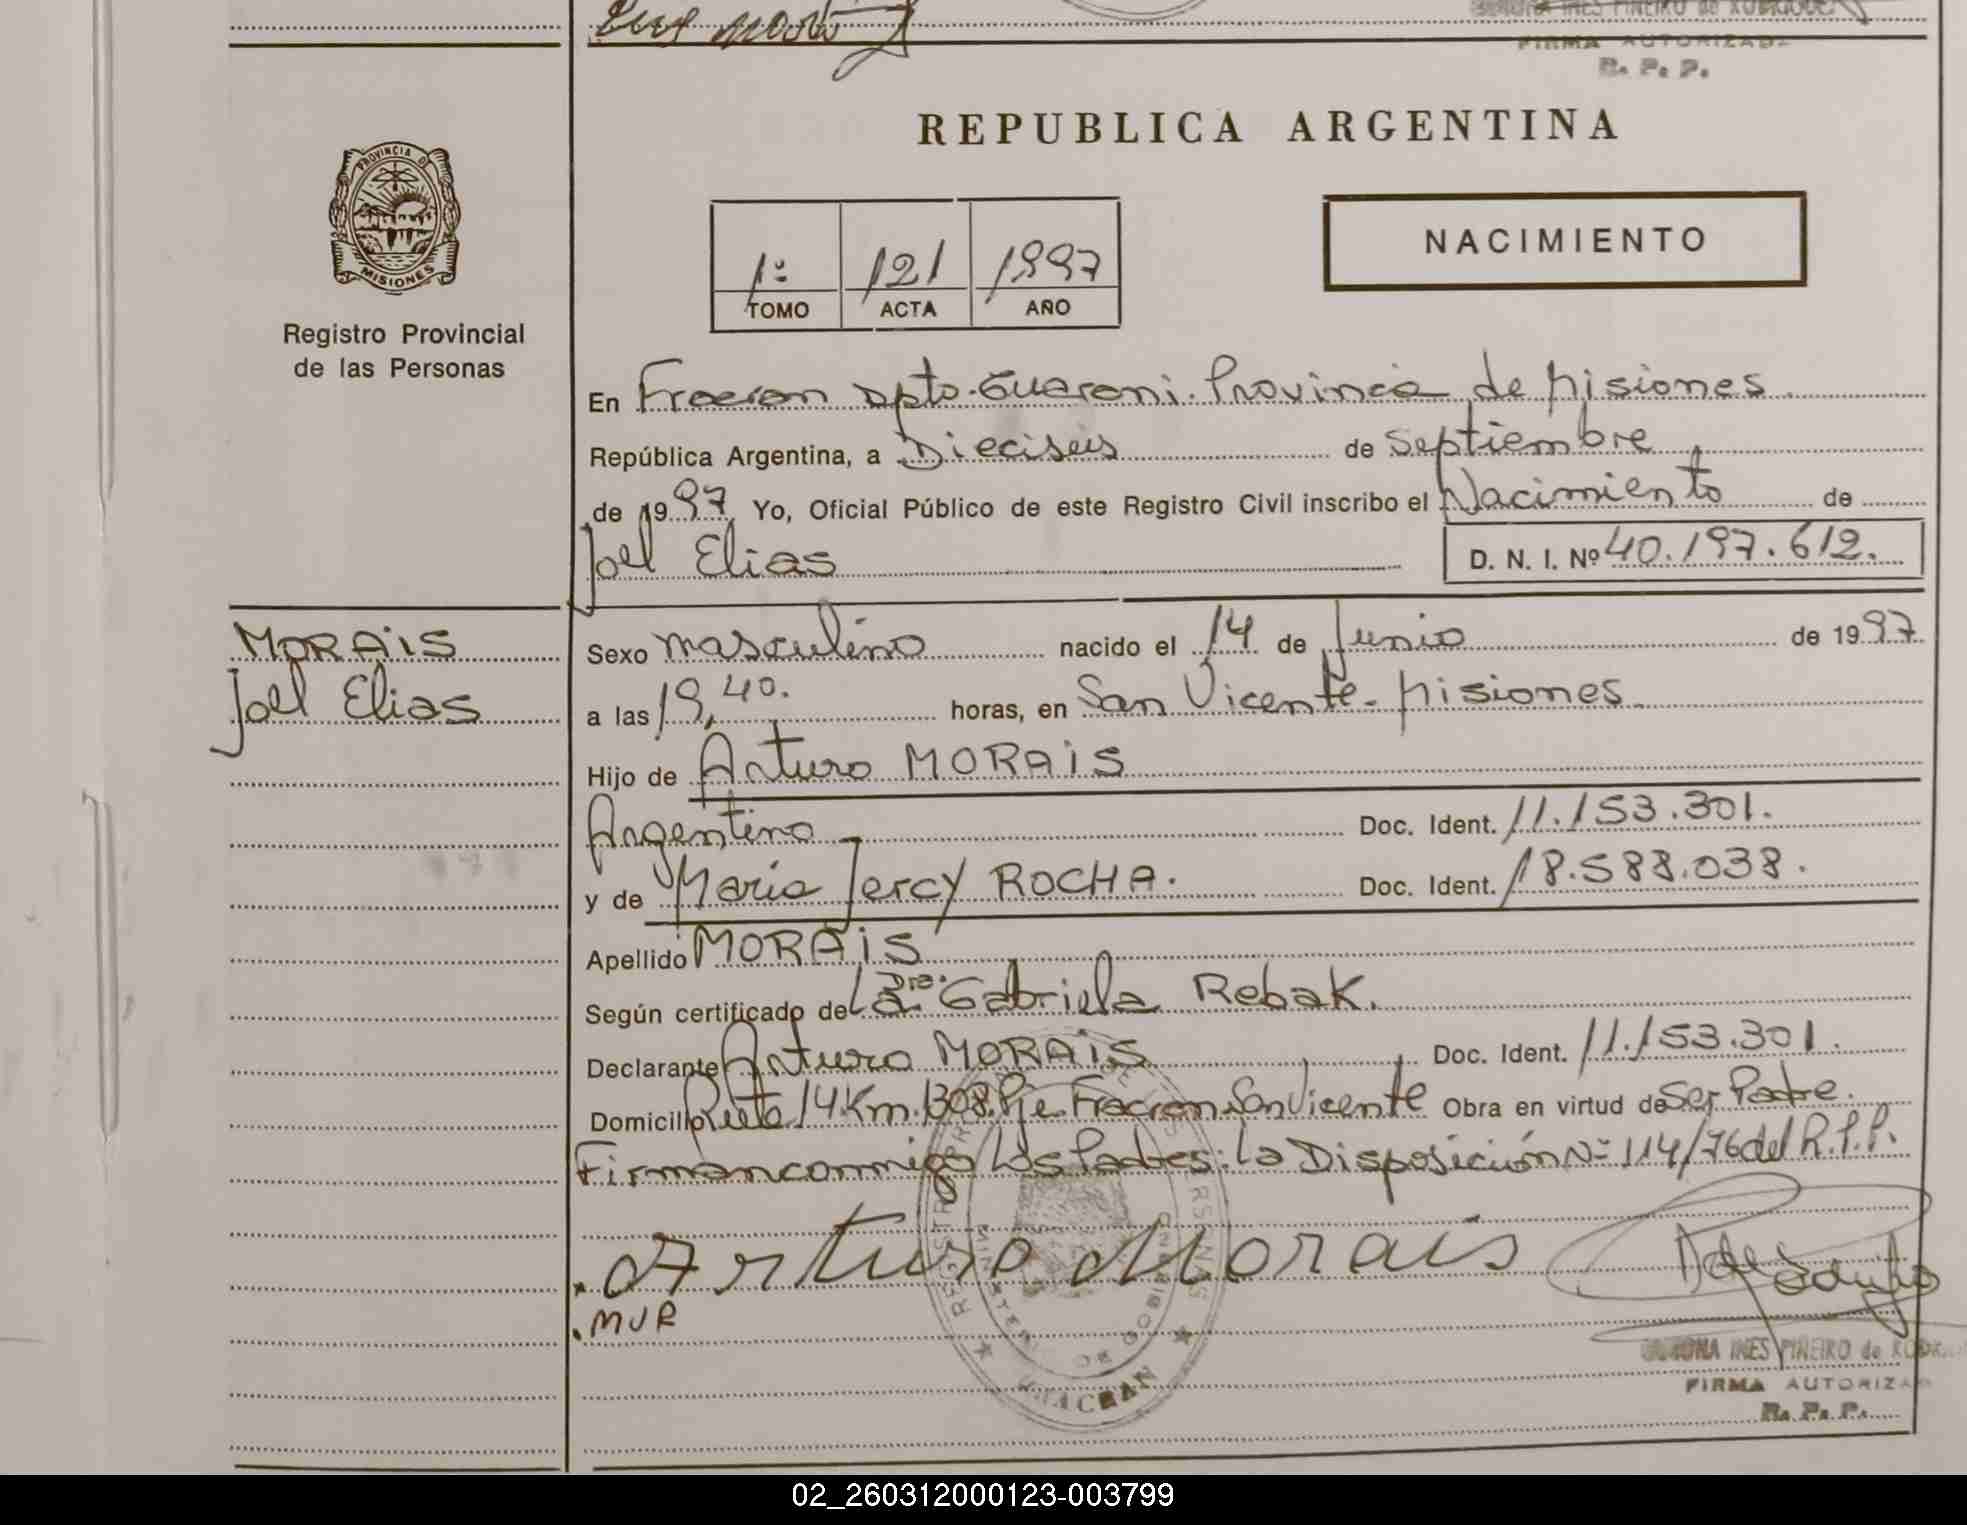 FIRMA AUTORIZADA
R. P. P.
REPUBLICA ARGENTINA
PROVINCIA DE
MISIONES
Registro Provincial
de las Personas
1º 121 1997
TOMO ACTA AÑO
NACIMIENTO
En Fracran Dpto. Guarani. Provincia de Misiones
República Argentina, a Dieciseis de Septiembre
de 1997 Yo, Oficial Público de este Registro Civil inscribo el Nacimiento de
Joel Elias D. N. I. Nº 40.197.612.
MORAiS
Joel Elias
Sexo masculino nacido el 14 de Junio de 1997
a las 19,40. horas, en San Vicente - Misiones
Hijo de Arturo MORAiS
Argentino Doc. Ident. 11.153.301.
y de Maria Jercy ROCHA. Doc. Ident. 18.588.038.
Apellido MORAiS
Según certificado de La Dra. Gabriela Rebak.
Declarante Arturo MORAiS Doc. Ident. 11.153.301.
Domicilio Ruta 14 Km. 1308. Pje. Fracran San Vicente Obra en virtud de Ser Padre.
Firman conmigo Los Padres: La Disposición Nº 114/76 del R.P.P.
Arturo Morais
MJR
RAMONA INES PIÑEIRO de
FIRMA AUTORIZADA
R. P. P.
02_260312000123-003799